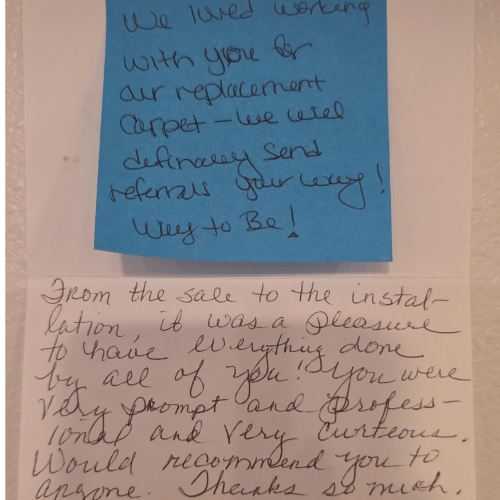 We loved working
with you for
our replacement
Carpet - we will
definately send
referrals your way!
Way to Be!
From the sale to the instal-
lation, it was a pleasure
to have everything done
by all of you! You were
very prompt and profess-
ional and very curteous.
Would recommend you to
anyone. Thanks so much.